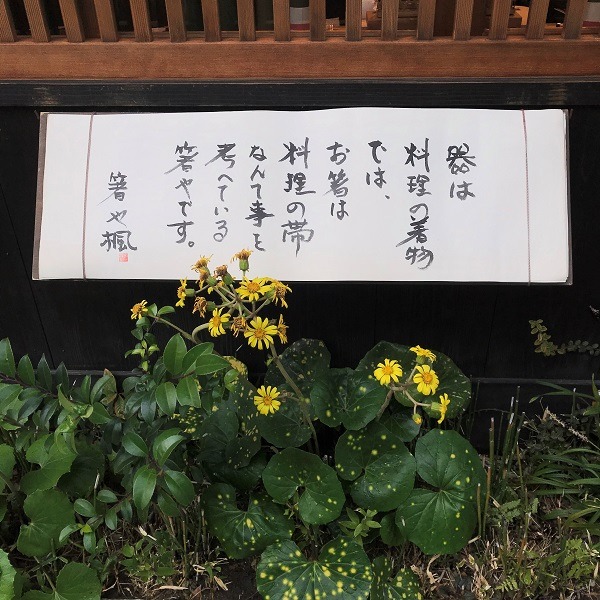 器は
料理の着物
では、
お箸は
料理の帯
なんて事を
考へている
箸やです。
箸や楓